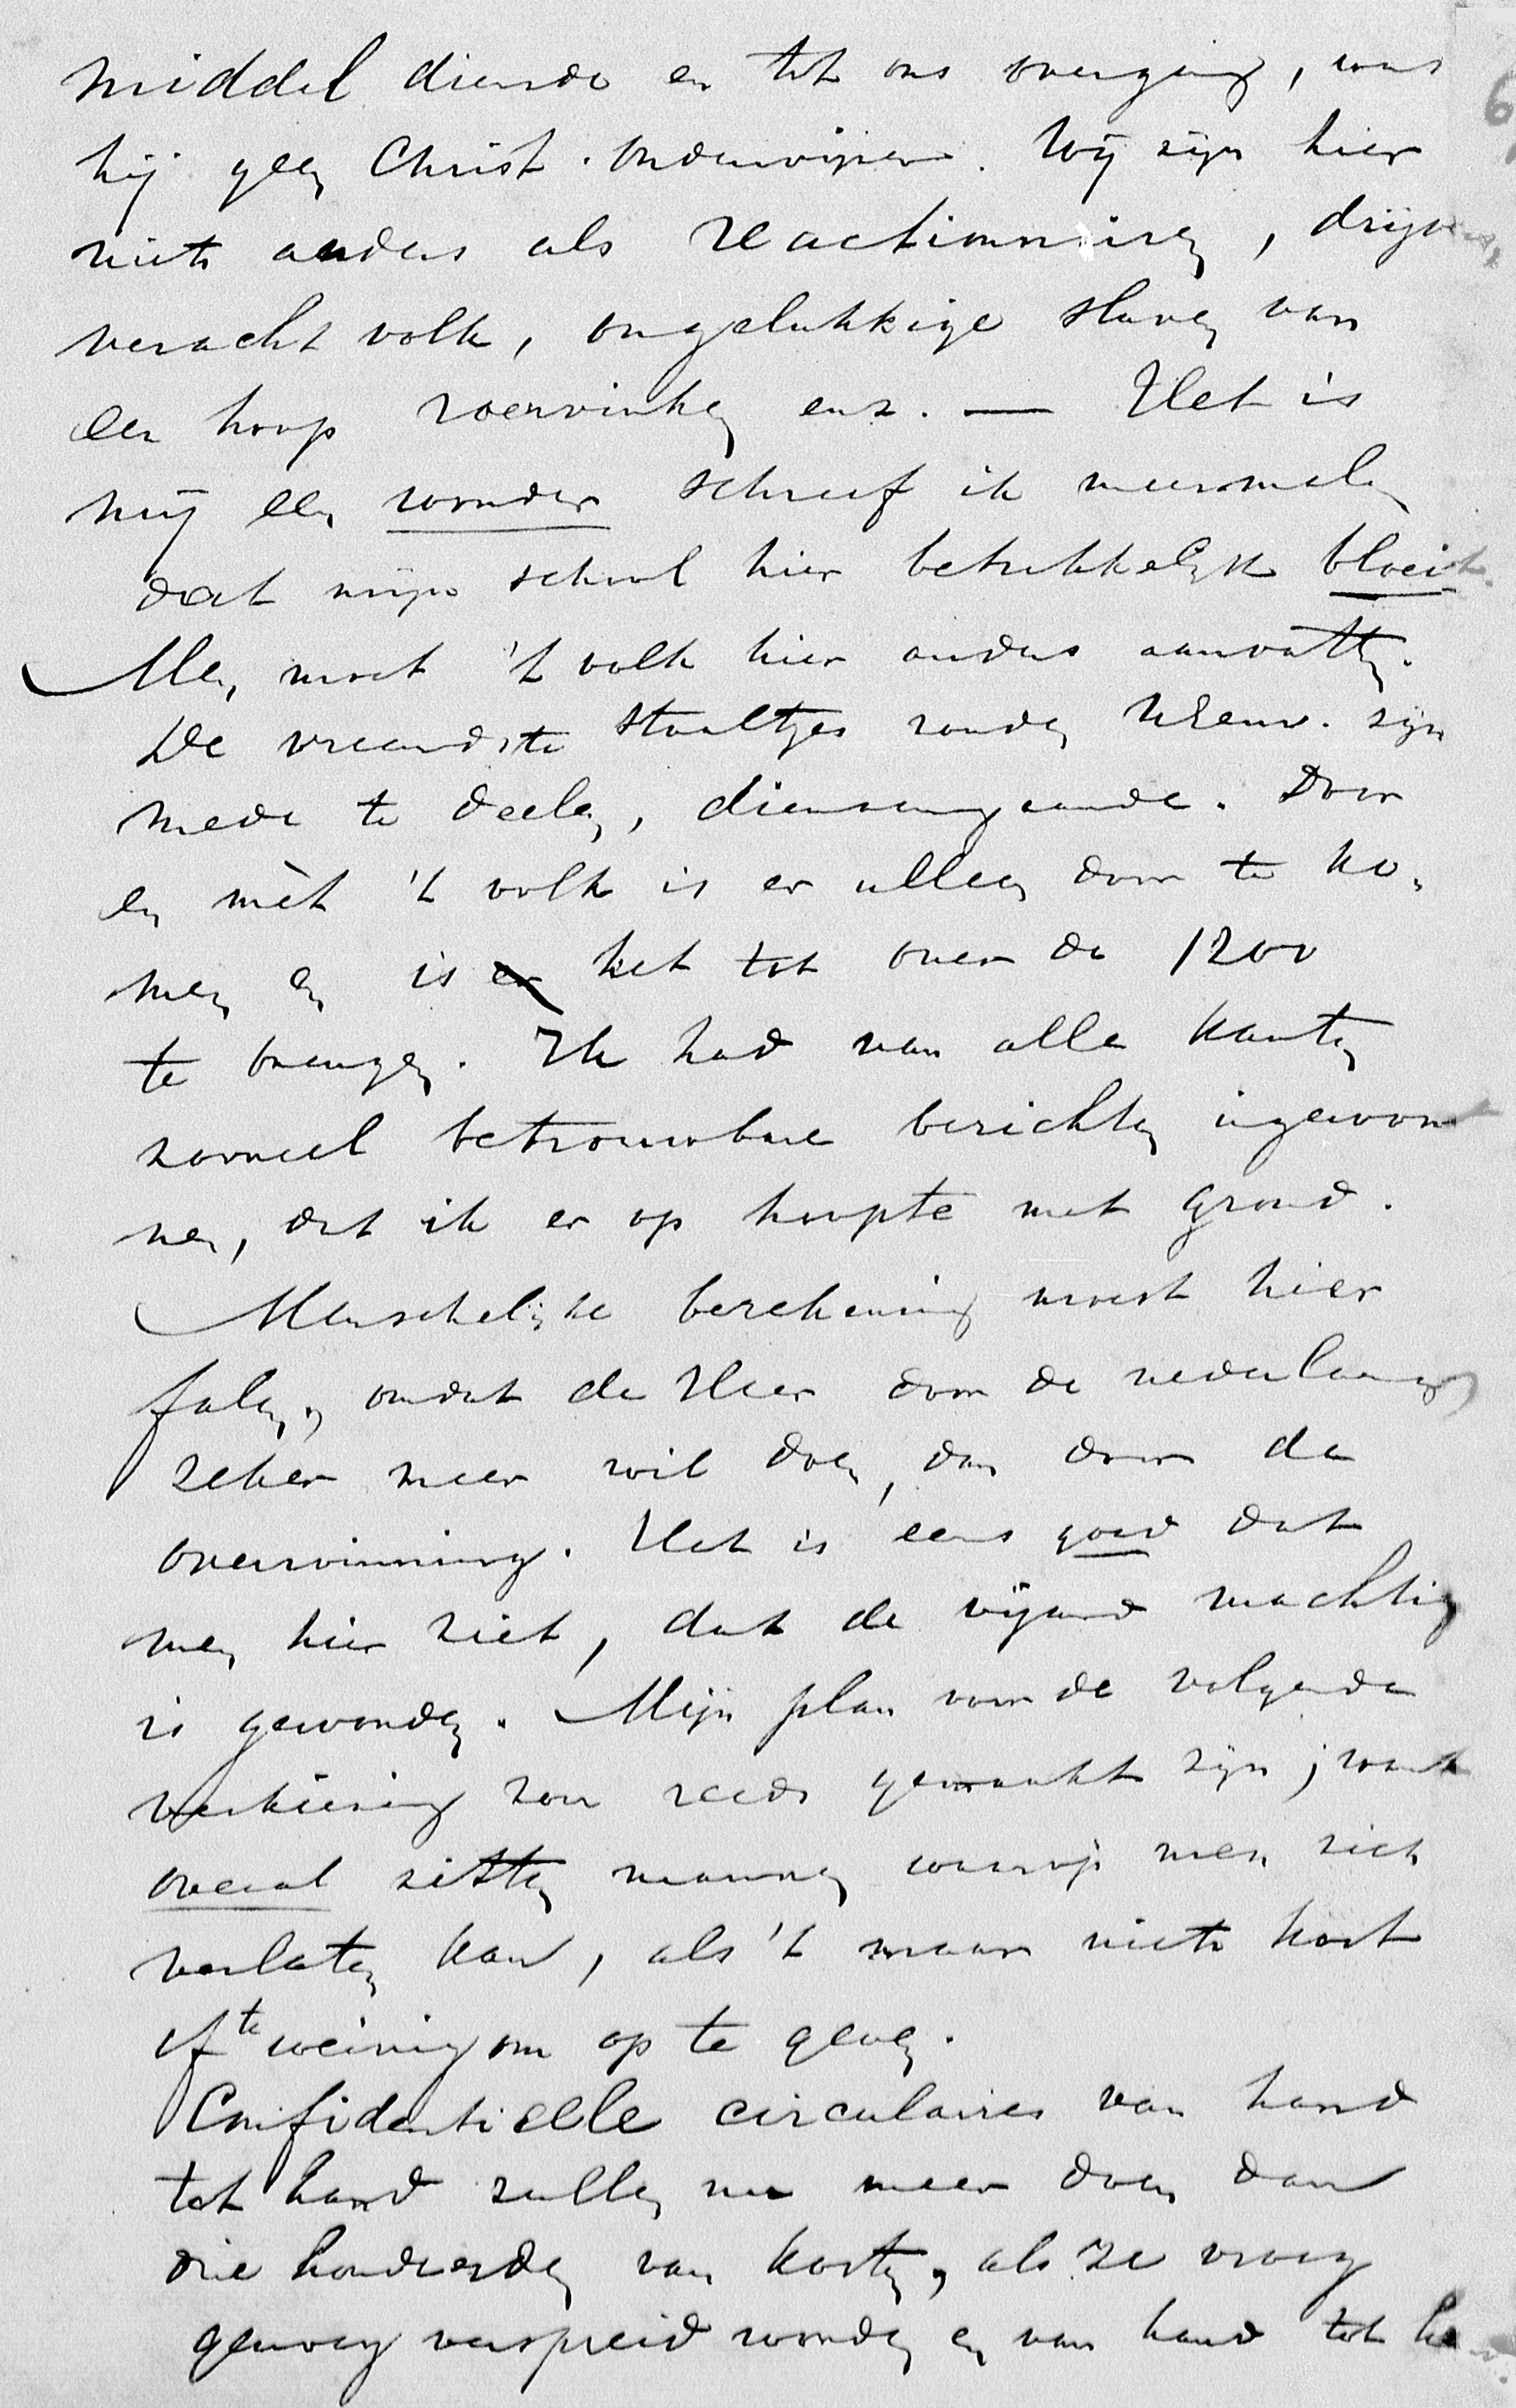 6
middel diende en tot ons overging, was
hij geen Christ. Onderwijzer. Wij zijn hier
niets anders als reactionnairen, drijvers,
veracht volk, ongelukkige slaven van
een hoop roervinken enz. — Het is
mij een wonder schreef ik meermalen
dat mijn school hier betrekkelijk bloeit.
Men moet 't volk hier anders aanvatten.
De vreemdste staaltjes zouden UEerw. zijn
mede te deelen, dienaangaande. Door
en mèt 't volk is er alleen door te ko-
men en is er het tot over de 1200
te brengen. Ik had van alle kanten
zooveel betrouwbare berichten ingewon
nen, dat ik er op hoopte met grond.
Menschelijke berekening moest hier
falen, omdat de Heer door de nederlaag
zeker meer wil doen, dan door de
overwinning. Het is eens goed dat
men hier ziet, dat de vijand machtig
is geworden. Mijn plan voor de volgende
verkiezing zou reeds gemaakt zijn; want
overal zitten mannen waarop men zich
verlaten kan, als 't maar niet te kort
of te weinig om op te geven.
Confidentielle circulaires van hand
tot hand zullen nu meer doen dan
die honderden van korten, als ze vroeg
genoeg verspreid worden en van hand tot